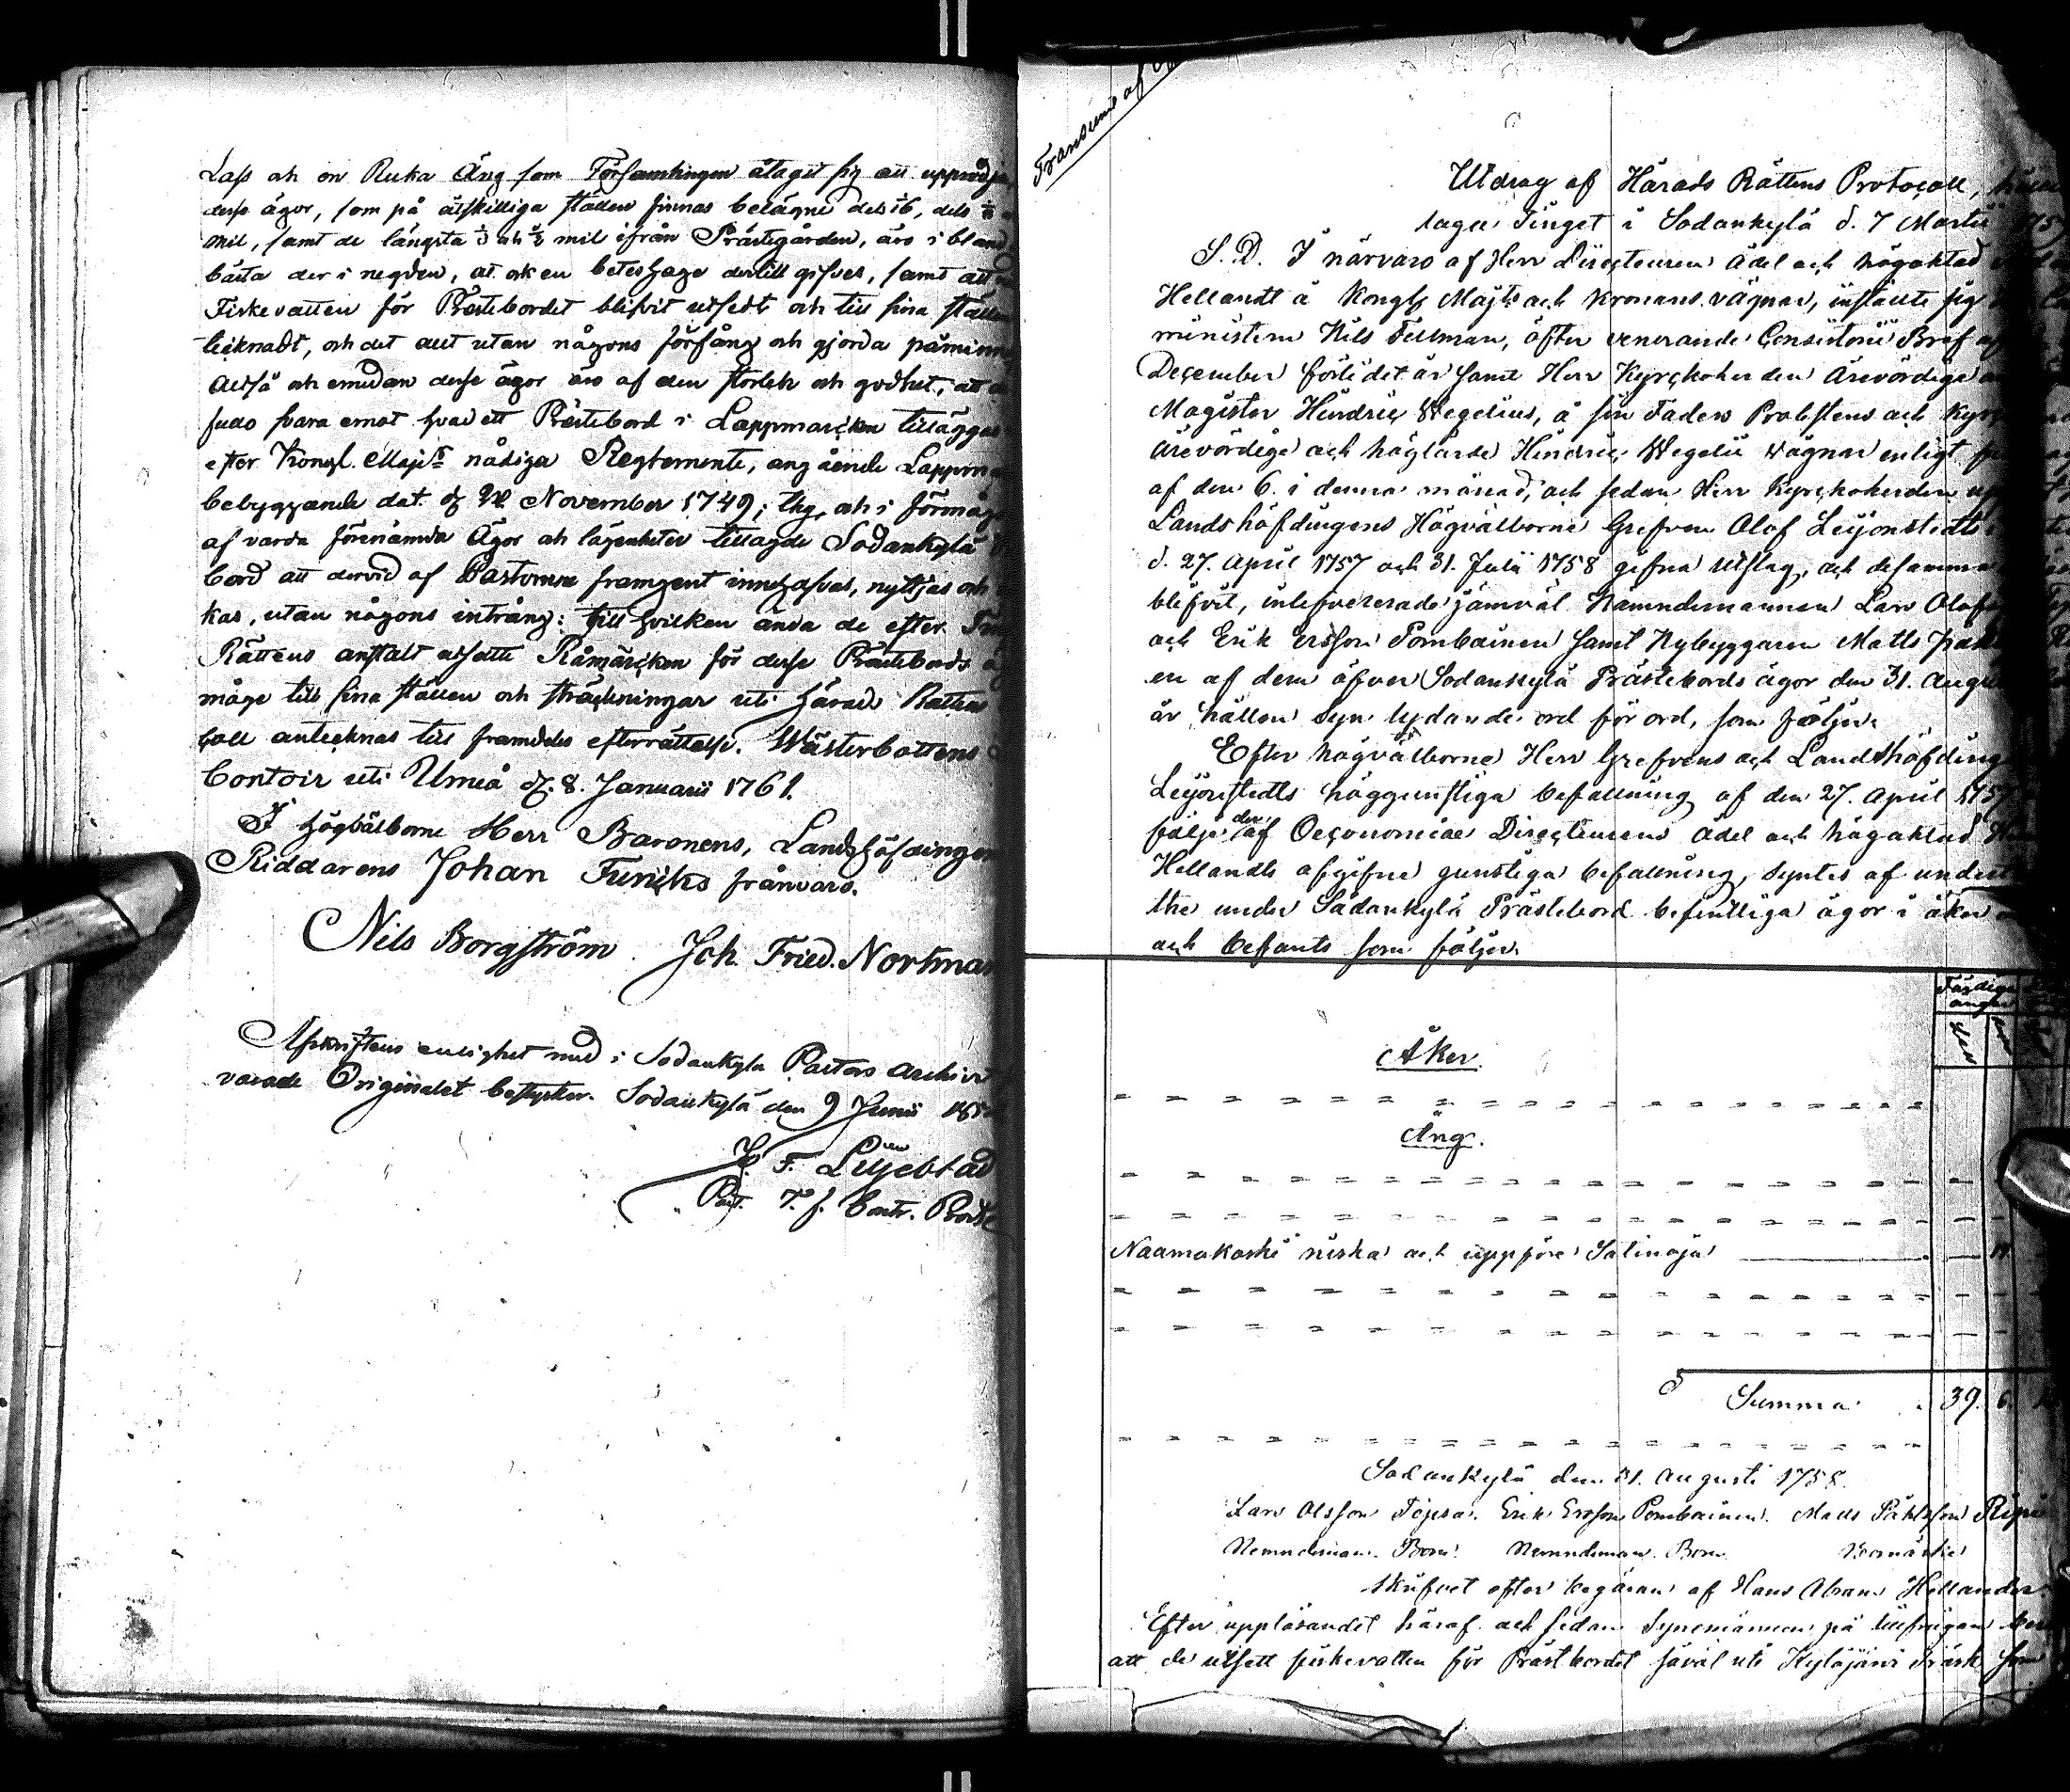 Lass och en Ruka Äng som Församlingen åtagit sig att upprödja
desse ägor, som på åtskilliga ställen finnas belägne dels 1/16, dels 1/8
mil, samt de längsta och mil ifrån Prästegården, äro i bland
bästa der i negden, at ok en beteshage dertill gifves, samt att
Fiskevatten för Prästebordet blifvit utsedt och till sina ställen
tecknadt, och det allt utan någons förfång och gjorda påminn
Altså och emedan desse ägor äro af den storlek och godhet, att
svara emot hvad ett Prästebord i Lappmarcken tillägges
efter Kongl. Maj:ts nådiga Reglemente, angående Lappm
bebyggande dat. d. November 1749; thy och i förmåga
af varda förenämda Ägor och lägenheter tillagde Sodankylä
bord att dervid af Pastorerne framgent innehafvas, nyttjas och
kas, utan någons intrång: till hvilken ända de efter
Rättens anstalt utsatte Råmärcken för desse Prästebords äg
måge till sina ställen och sträckningar uti Härads Rättens
coll antecknas till framdeles efterrättelse. Wästerbottens
Contoir uti Umeå d. 8. Januarii 1761.
I Högvälborne Herr Baronens, Landshöfdingens
Riddarens Johan Funcks frånvaro.
Nils Borgström. Joh. Fried. Nortman
Afskriftens enlighet med i Sodankylä Pastors Archiv
varade Originalet bestyrker. Sodankylä den 9 Junii 18
F. Liljeblad
Past. T. f. Contr. Prost
Transumt af
Utdrag af Härads Rättens Protocoll, hållit
laga Tinget i Sodankylä d. 7 Martii
S. D. I närvaro af Herr Directeuren Ädel och högaktad
Hellandt å Kongl. Maj:ts och Kronans vägnar, instälte sig
ministern Nils Fellman, efter venerande Consistorii Bref af
December förledit år samt Herr Kyrckoherden Ärevördige
Magister Hindric Wegelius, å sin Faders Probstens och Kyrc
ärevördige och höglärde Hindric Wegelii wägnar enligt
af den 6. i denna månad, och sedan Herr Kyrckoherden upp
Landshöfdingens Högvälborne Grefven Olof Leijonstedts
d. 27. April 1757 och 31. Julii 1758 gifne utslag, och desamma
blifvit, inlefvererade jämväl Nämndemannen Lars Olofs
och Erik Ersson Pombainen samt Nybyggaren Matts
en af dem öfver Sodankylä Prästebords ägor den 31. Augu
år hållen Syn lydande ord för ord, som följer.
Efter högvälborne Herr Grefvens och Landshöfding
Leijonstedts höggunstiga befallning af den 27. April 1757
följe der af Oeconomiae Directeurens Ädel och högaktad
Hellandts afgifne gunstiga befallning, Syntes af under
the under Sodankylä Prästebord befintliga ägor i åker
och befants som följer.
Färdige
änger
Åker.
Äng.
Naamakoski niska och uppföre Satinoja
Summa 39. 6.
Sodankylä den 31. Augusti 1758.
Lars Olsson Erik Ersson Pombainen. Matts Påhlsson
Nemndeman. Bom. Nemndeman. Bom. Bomärke
skrifvet efter begäran af Hans Abram Hellander.
Efter uppläsandet häraf och sedan Synemännen på tillfrågan
att de utsett fiskevatten för Prästbordet såväl uti Kyläjärvi Träsk som